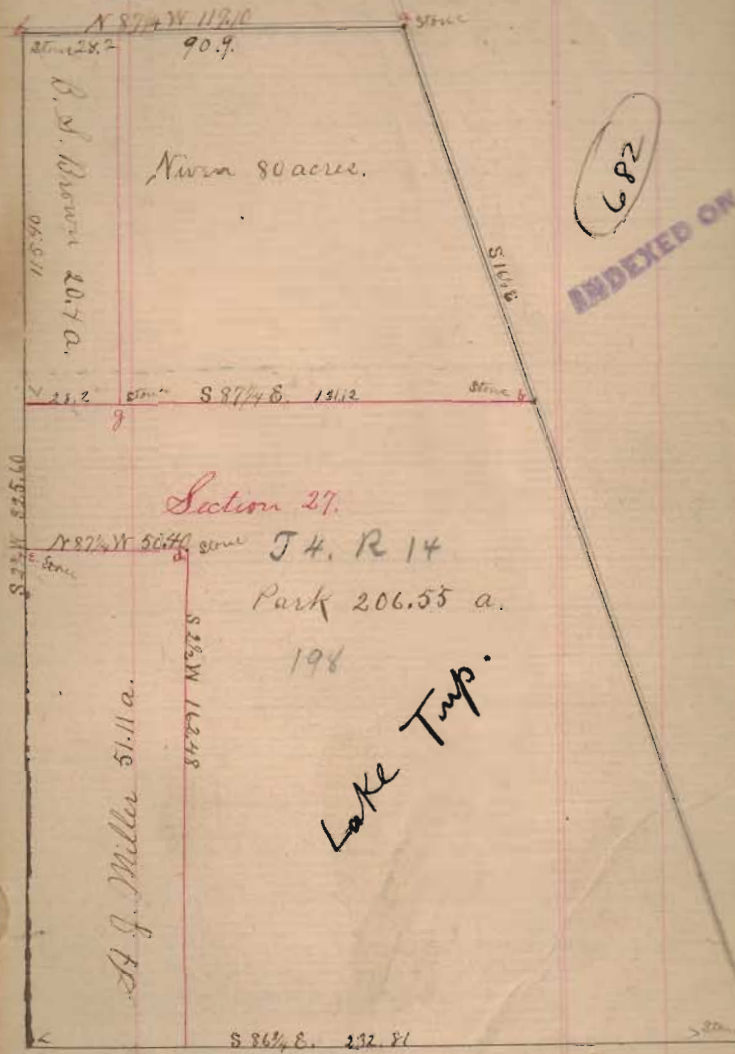 N 87¼ W 119.10
Stone
Stone 28.2
90.9.
B. S. Brown 20.4 a.
Niven 80 acres.
682
INDEXED ON
S 10. E
28.2
Stone
S 87¼ E. 131.12
Stone b
g
S 2½ W 325.60
Section 27.
N 87¼ W 50.40
Stone
d
Stone
T 4. R 14
Park 206.55 a.
198
S 2½ W 162.48
Lake Twp.
St J. Miller 51.11 a.
S 86¾ E. 232.81